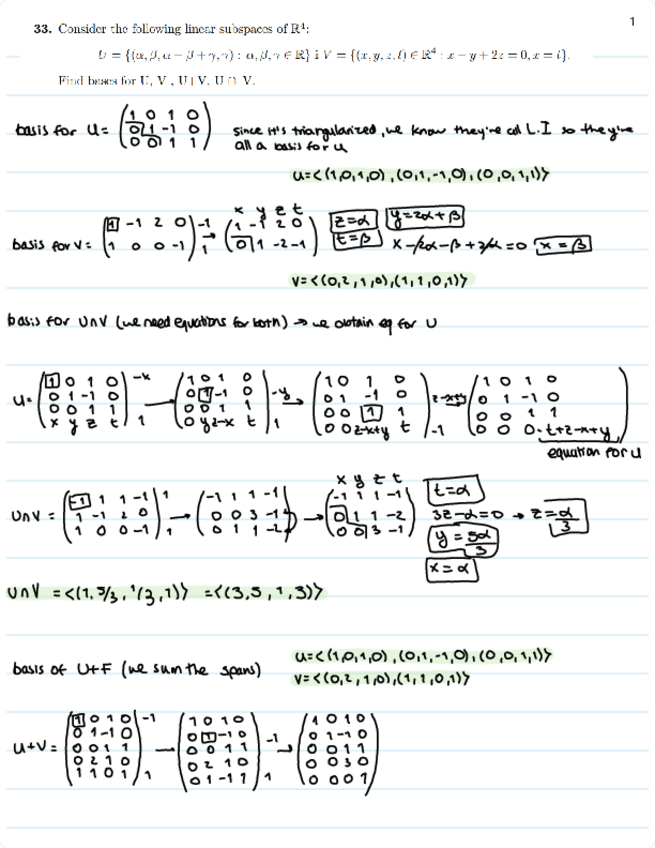 1
33. Consider the following linear subspaces of R⁴:
U = {(α, β, α − β + γ, γ) : α, β, γ ∈ R} i V = {(x, y, z, t) ∈ R⁴ : x − y + 2z = 0, x = t}.
Find bases for U, V, U + V, U ∩ V.
basis for U= (1 0 1 0
0 1 -1 0
0 0 1 1) since it's triangularized, we know they're all L.I so they're all a basis for U
U=<(1,0,1,0),(0,1,-1,0),(0,0,1,1)>
basis for V= (1 -1 2 0
1 0 0 -1) -1 1 → x y z t (1 -1 2 0
0 1 -2 -1) z=α t=β y=2α+β
x-2α-β+2α=0 x=β
V=<(0,2,1,0),(1,1,0,1)>
basis for U∩V (we need equations for both) → we obtain eq for U
U= (1 0 1 0
0 1 -1 0
0 0 1 1
x y z t) -x 1 → (1 0 1 0
0 1 -1 0
0 0 1 1
0 y z-x t) -y 1 → (1 0 1 0
0 1 -1 0
0 0 1 1
0 0 z-x+y t) z-x+y -1 → (1 0 1 0
0 1 -1 0
0 0 1 1
0 0 0 -t+z-x+y)
equation for U
U∩V = (-1 1 1 -1
1 -1 2 0
1 0 0 -1) 1 1 → (-1 1 1 -1
0 0 3 -1
0 1 1 -2) → x y z t (-1 1 1 -1
0 1 1 -2
0 0 3 -1) t=α
3z-α=0 → z=α/3
y=5α/3
x=α
U∩V =<(1,5/3,1/3,1)> =<(3,5,1,3)>
basis of U+F (we sum the spans) U=<(1,0,1,0),(0,1,-1,0),(0,0,1,1)>
V=<(0,2,1,0),(1,1,0,1)>
U+V= (1 0 1 0
0 1 -1 0
0 0 1 1
0 2 1 0
1 1 0 1) -1 1 → (1 0 1 0
0 1 -1 0
0 0 1 1
0 2 1 0
0 1 -1 1) -1 1 → (1 0 1 0
0 1 -1 0
0 0 1 1
0 0 3 0
0 0 0 1)